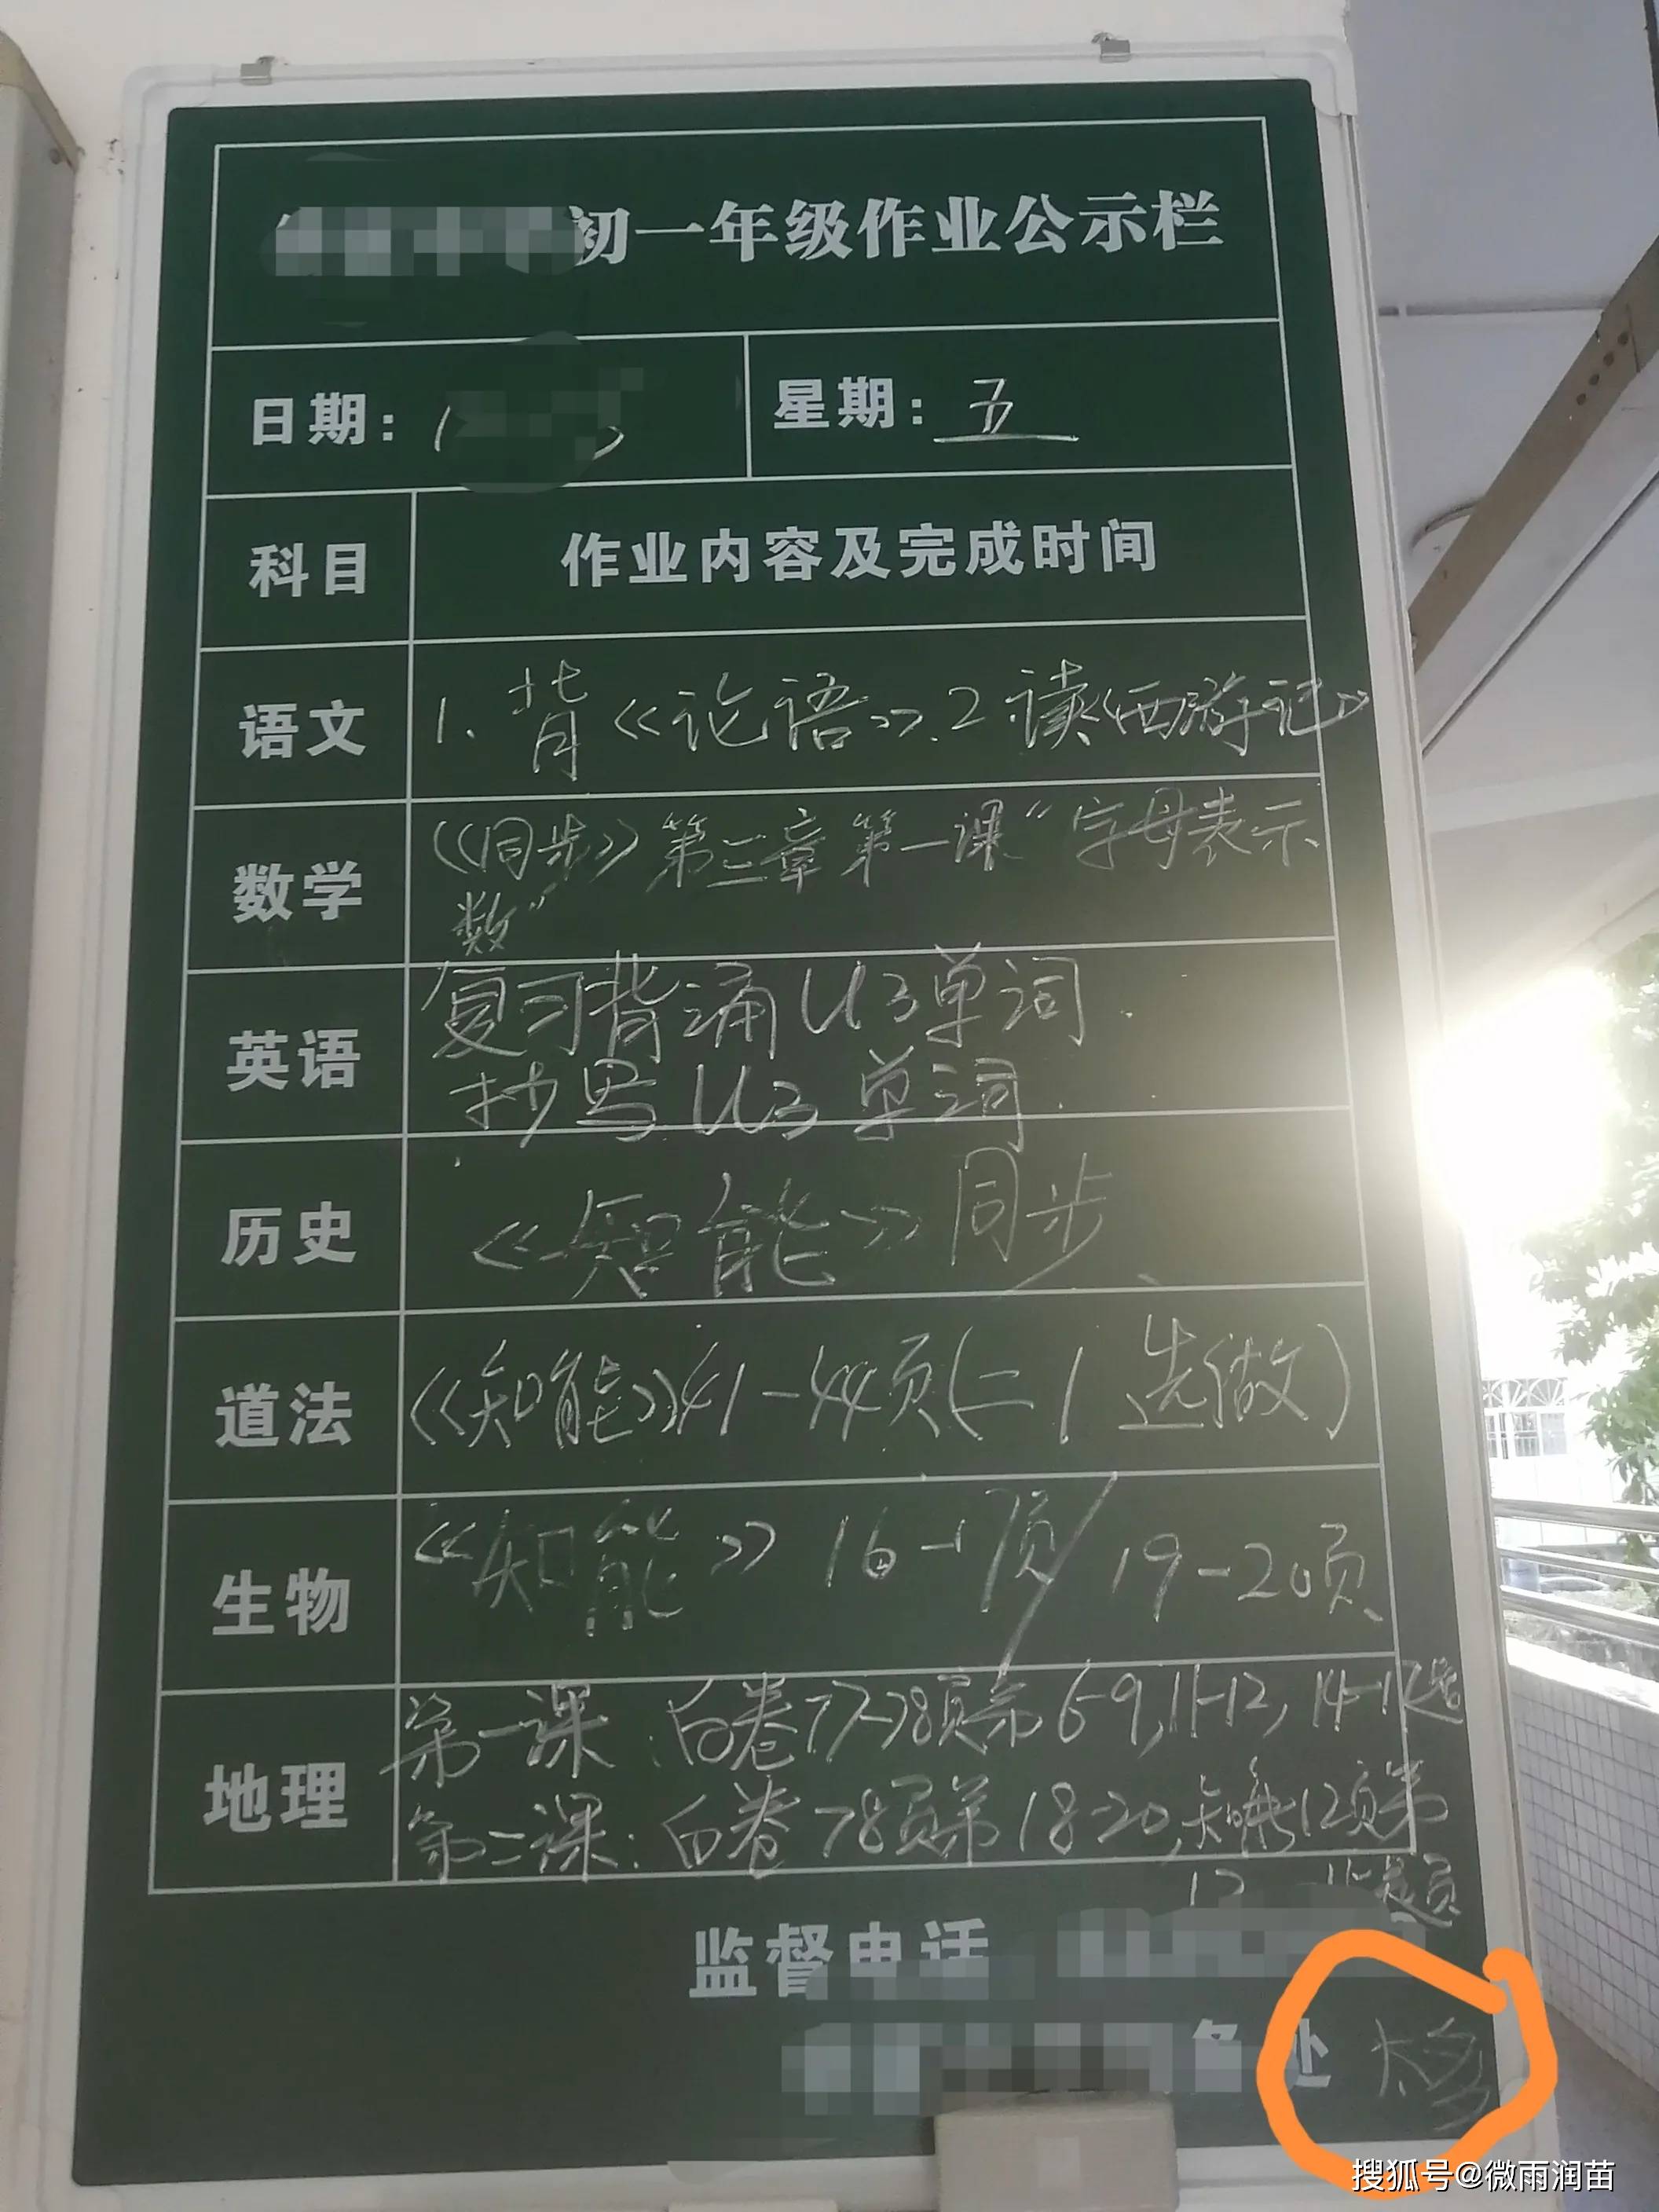 初一年级作业公示栏
日期: 星期: 五
科目 作业内容及完成时间
语文 1、背《论语》.2读《西游记》
数学 《同步》第三章第一课“字母表示
数”
英语 复习背诵U3单词.
抄写U3单词.
历史 《知能》同步
道法 《知能》41-44页(二1选做)
生物 《知能》16-17页/19-20页
地理 第一课:白卷77-78页第6-9,11-12,14-17题
第二课:白卷78页第18-20,知能12页第
12 题
监督电话
务处 太多
搜狐号@微雨润苗